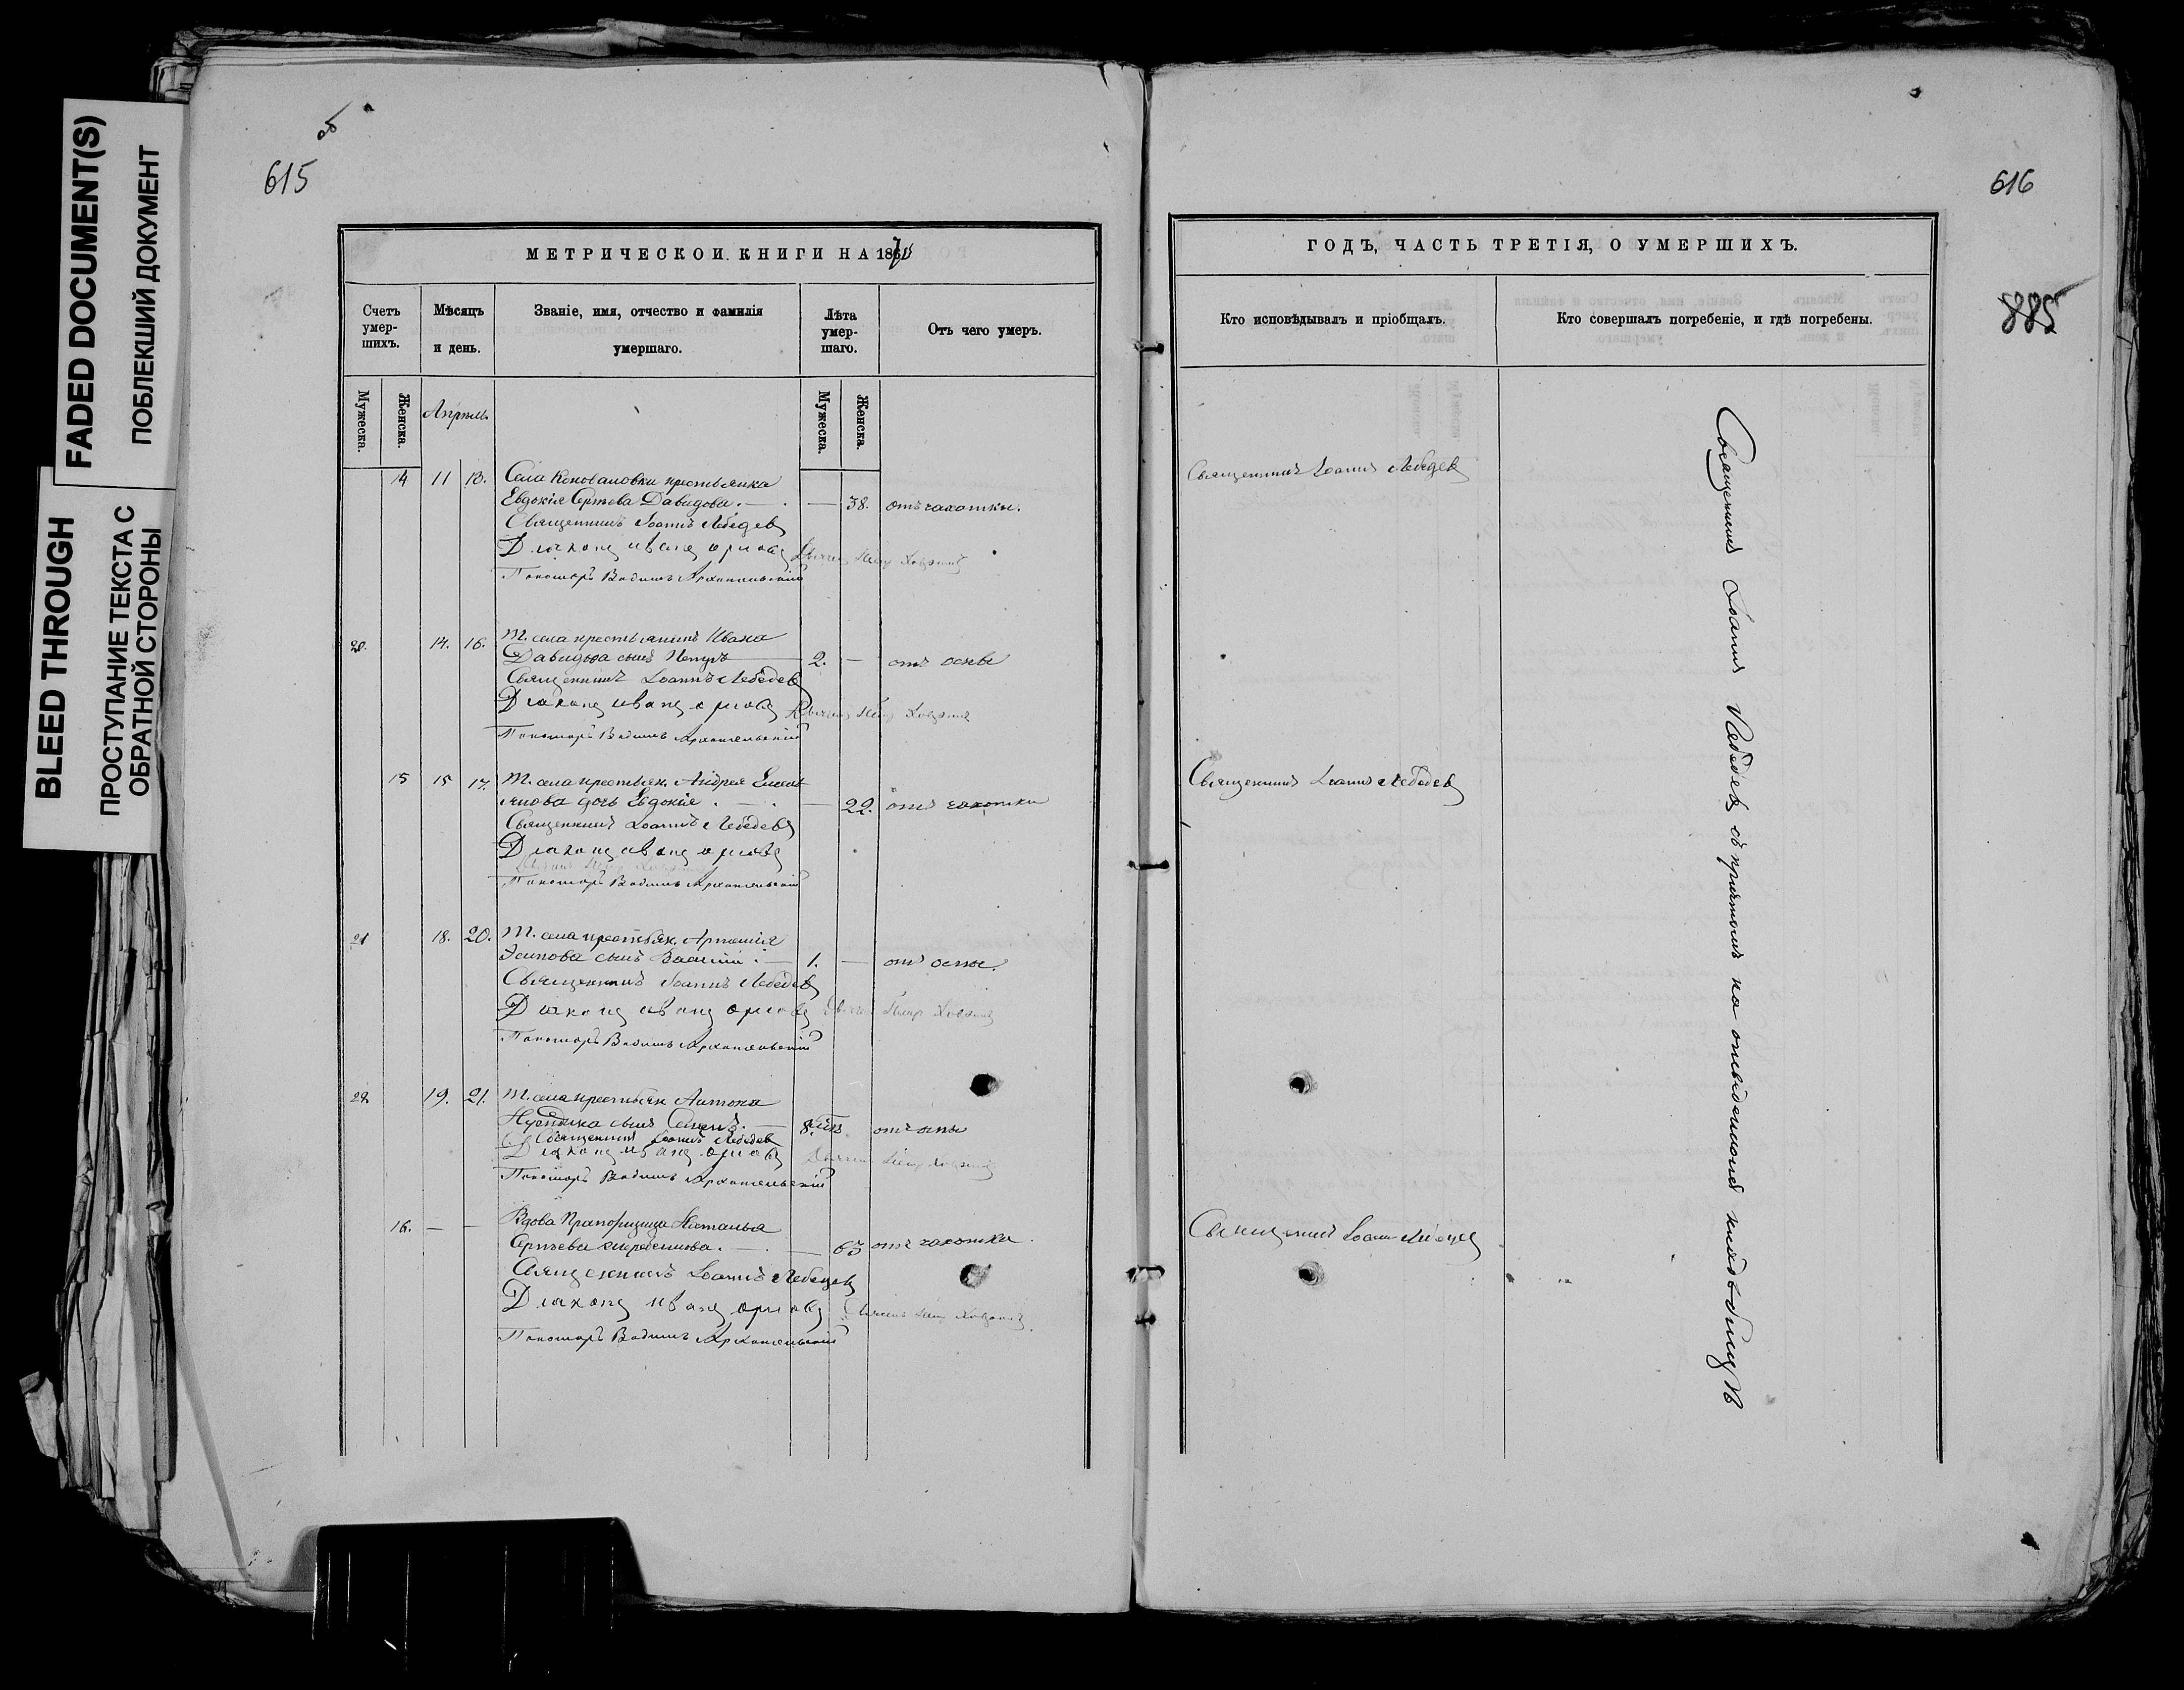 FADED DOCUMENT(S)
ПОБЛЕКШИЙ ДОКУМЕНТ
BLEED THROUGH
ПРОСТУПАНИЕ ТЕКСТА С
ОБРАТНОЙ СТОРОНЫ
об
615
МЕТРИЧЕСКОИ КНИГИ НА 1870
Счетъ умер-шихъ.
Мѣсяцъ и день.
Званіе, имя, отчество и фамилія умершаго.
Лѣта умер-шаго.
Отъ чего умеръ.
Мужеска.
Женска.
Апрель
Мужеска.
Женска.
14 11 13. Села Коноваловки крестьянка
Евдокія Сергѣева Давидова. — 38. отъ чахотки.
Священникъ Іоаннъ Лебедевъ
Діаконъ Иванъ Орловъ
Пономарь Вадимъ Архангельскій
20. 14. 16. Т. села крестьянинъ Ивана
Давидова сынъ Петръ 2. — отъ оспы
Священникъ Іоаннъ Лебедевъ
Діаконъ Иванъ Орловъ
Пономарь Вадимъ Архангельскій
15 15 17. Т. села крестьян. Андрея
дочь Евдокія. — 22. отъ чахотки
Священникъ Іоаннъ Лебедевъ
Діаконъ Иванъ Орловъ
Пономарь Вадимъ Архангельскій
21 18. 20. Т. села крестьян. Артемія
Осипова сынъ Василій. — 1. — отъ оспы.
Священникъ Іоаннъ Лебедевъ
Діаконъ Иванъ Орловъ
Пономарь Вадимъ Архангельскій
22 19. 21. Т. села крестьян. Антона
сынъ Семенъ. — 8. отъ оспы
Священникъ Іоаннъ Лебедевъ
Діаконъ Иванъ Орловъ
Пономарь Вадимъ Архангельскій
16. — — Вдова Прапорщица Наталья
Сергѣева — 63 отъ чахотки.
Священникъ Іоаннъ Лебедевъ
Діаконъ Иванъ Орловъ
Пономарь Вадимъ Архангельскій
616
885
ГОДЪ, ЧАСТЬ ТРЕТІЯ, О УМЕРШИХЪ.
Кто исповѣдывалъ и пріобщалъ.
Кто совершалъ погребеніе, и гдѣ погребены.
Священникъ Іоаннъ Лебедевъ
Священникъ Іоаннъ Лебедевъ
Священникъ Іоаннъ Лебедевъ
Священникъ Іоаннъ Лебедевъ съ причтомъ на отведенномъ кладбищѣ